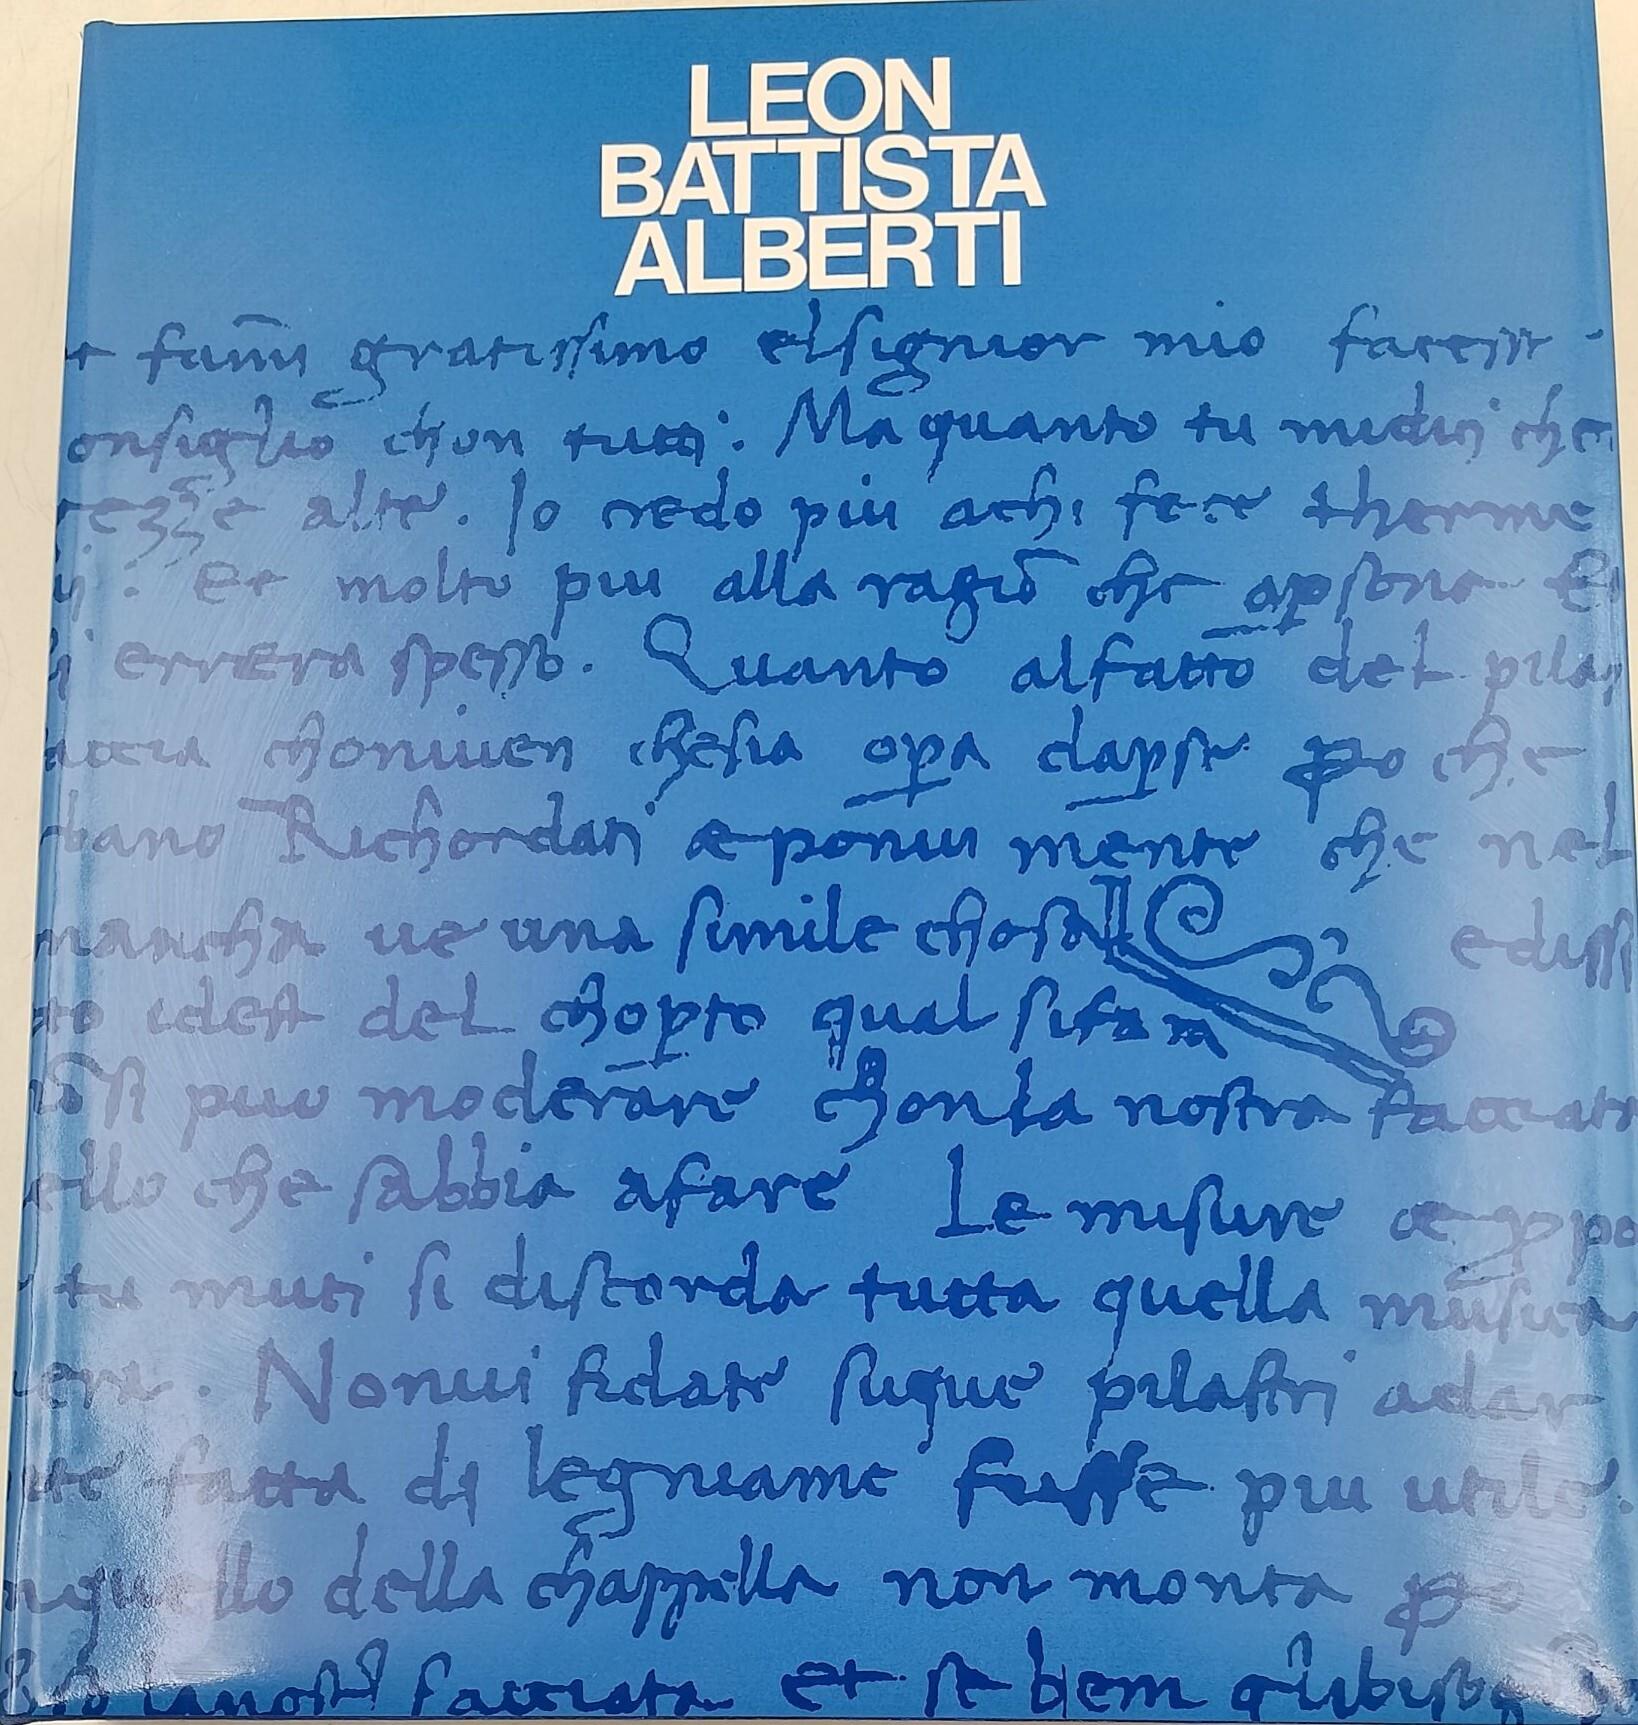 LEON
BATTISTA
ALBERTI
gratissimo elsignior mio
onsiglio chon tutti: Ma quanto tu midici che
rezze alte. Io credo piu achi fece therme
Et molto piu alla ragiō che apsona
errera spesso. Quanto alfatto del pila
accia chonivien chesia opa dapse po che
Richordati ponui mente che nel
mancha ve una simile chosa edissi
to idest del chopto qual sifara
puo moderare chonla nostra facciat
ello che sabbia afare Le misure
tu muti si discorda tutta quella musica
Nonvi fidate suque pilastri adar
fatta di legniame fusse piu utile.
nquello della chappella non monta po
facciata et se bem